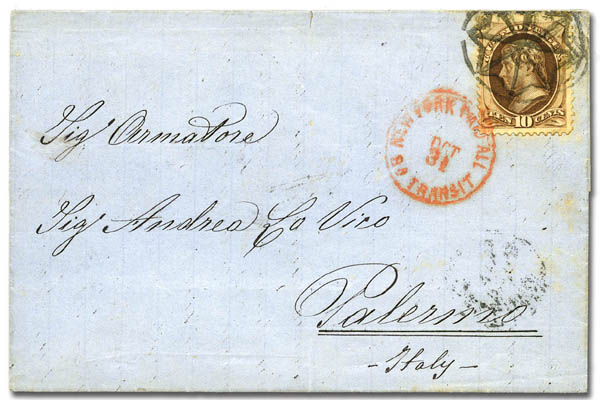 10
TEN CENTS
NEW YORK PAID ALL
OCT
31
TRANSIT
Sig.r Armatore
Sig.r Andrea Lo Vico
Palermo
- Italy -